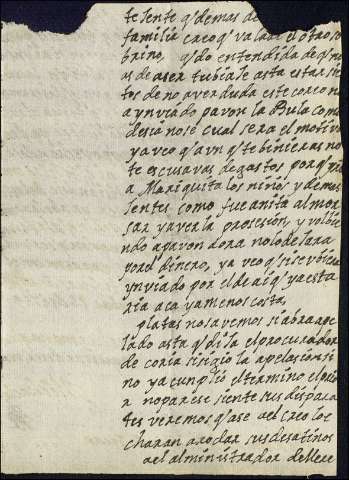 te sente qᵉ demas de
familia creo qᵉ va la de el otro so
brino, qᵉdo entendida de qᵉ no
as de aser tubicase asta estar sie
tos de no aver dada este coreo no
a ynviado pavon la Bula como
desia no se cual sera el motivo
ya veo qᵉ aun qᵉ te binieras no
te escusavas de gastos por qᵉ
a Mariquita los niños y demas
sentes como fue anita al mor
sar y a ver la prosesion, y volbie
ndo a pavon dora no lo de lara
por el dinero, ya veo qᵉ si se vbiera
ynviado por el de ai qᵉ ya esta
ria aca y a menos costa,
platas no savemos si abra ape
lado asta qᵉ diga el procurador
de coria si sigio la apelasion si
no ya cunplio el termino el
r no parese siente sus dispara
tes veremos qᵉ ase el creo lo e
charan a rodar sus desatinos
el alministrador de llere